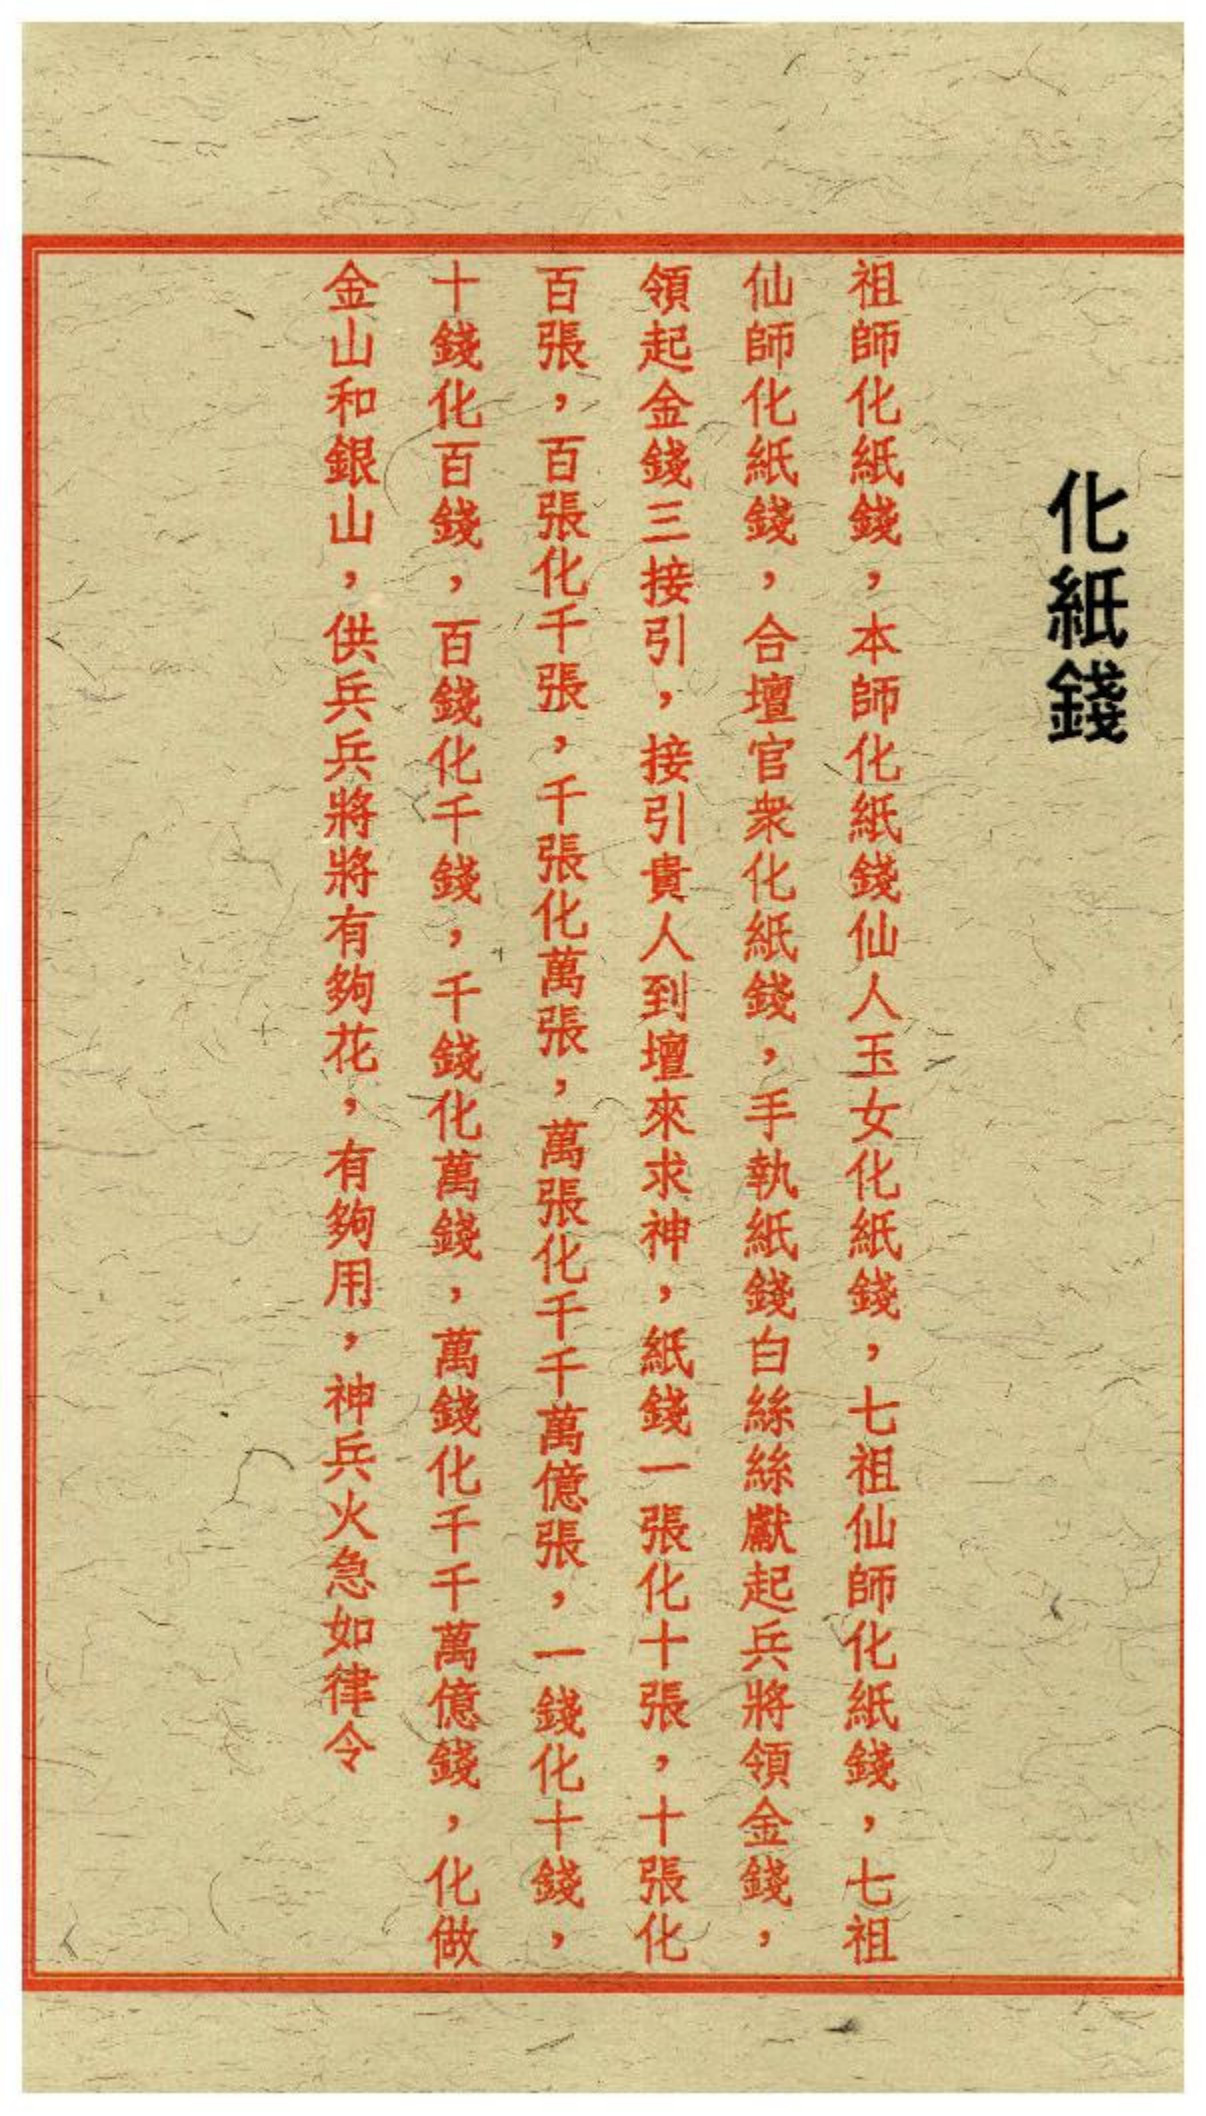 化紙錢
祖師化紙錢，本師化紙錢仙人玉女化紙錢，七祖仙師化紙錢，七祖
仙師化紙錢，合壇官衆化紙錢，手執紙錢白絲絲獻起兵將領金錢，
領起金錢三接引，接引貴人到壇來求神，紙錢一張化十張，十張化
百張，百張化千張，千張化萬張，萬張化千千萬億張，一錢化十錢，
十錢化百錢，百錢化千錢，千錢化萬錢，萬錢化千千萬億錢，化做
金山和銀山，供兵兵將將有夠花，有夠用，神兵火急如律令